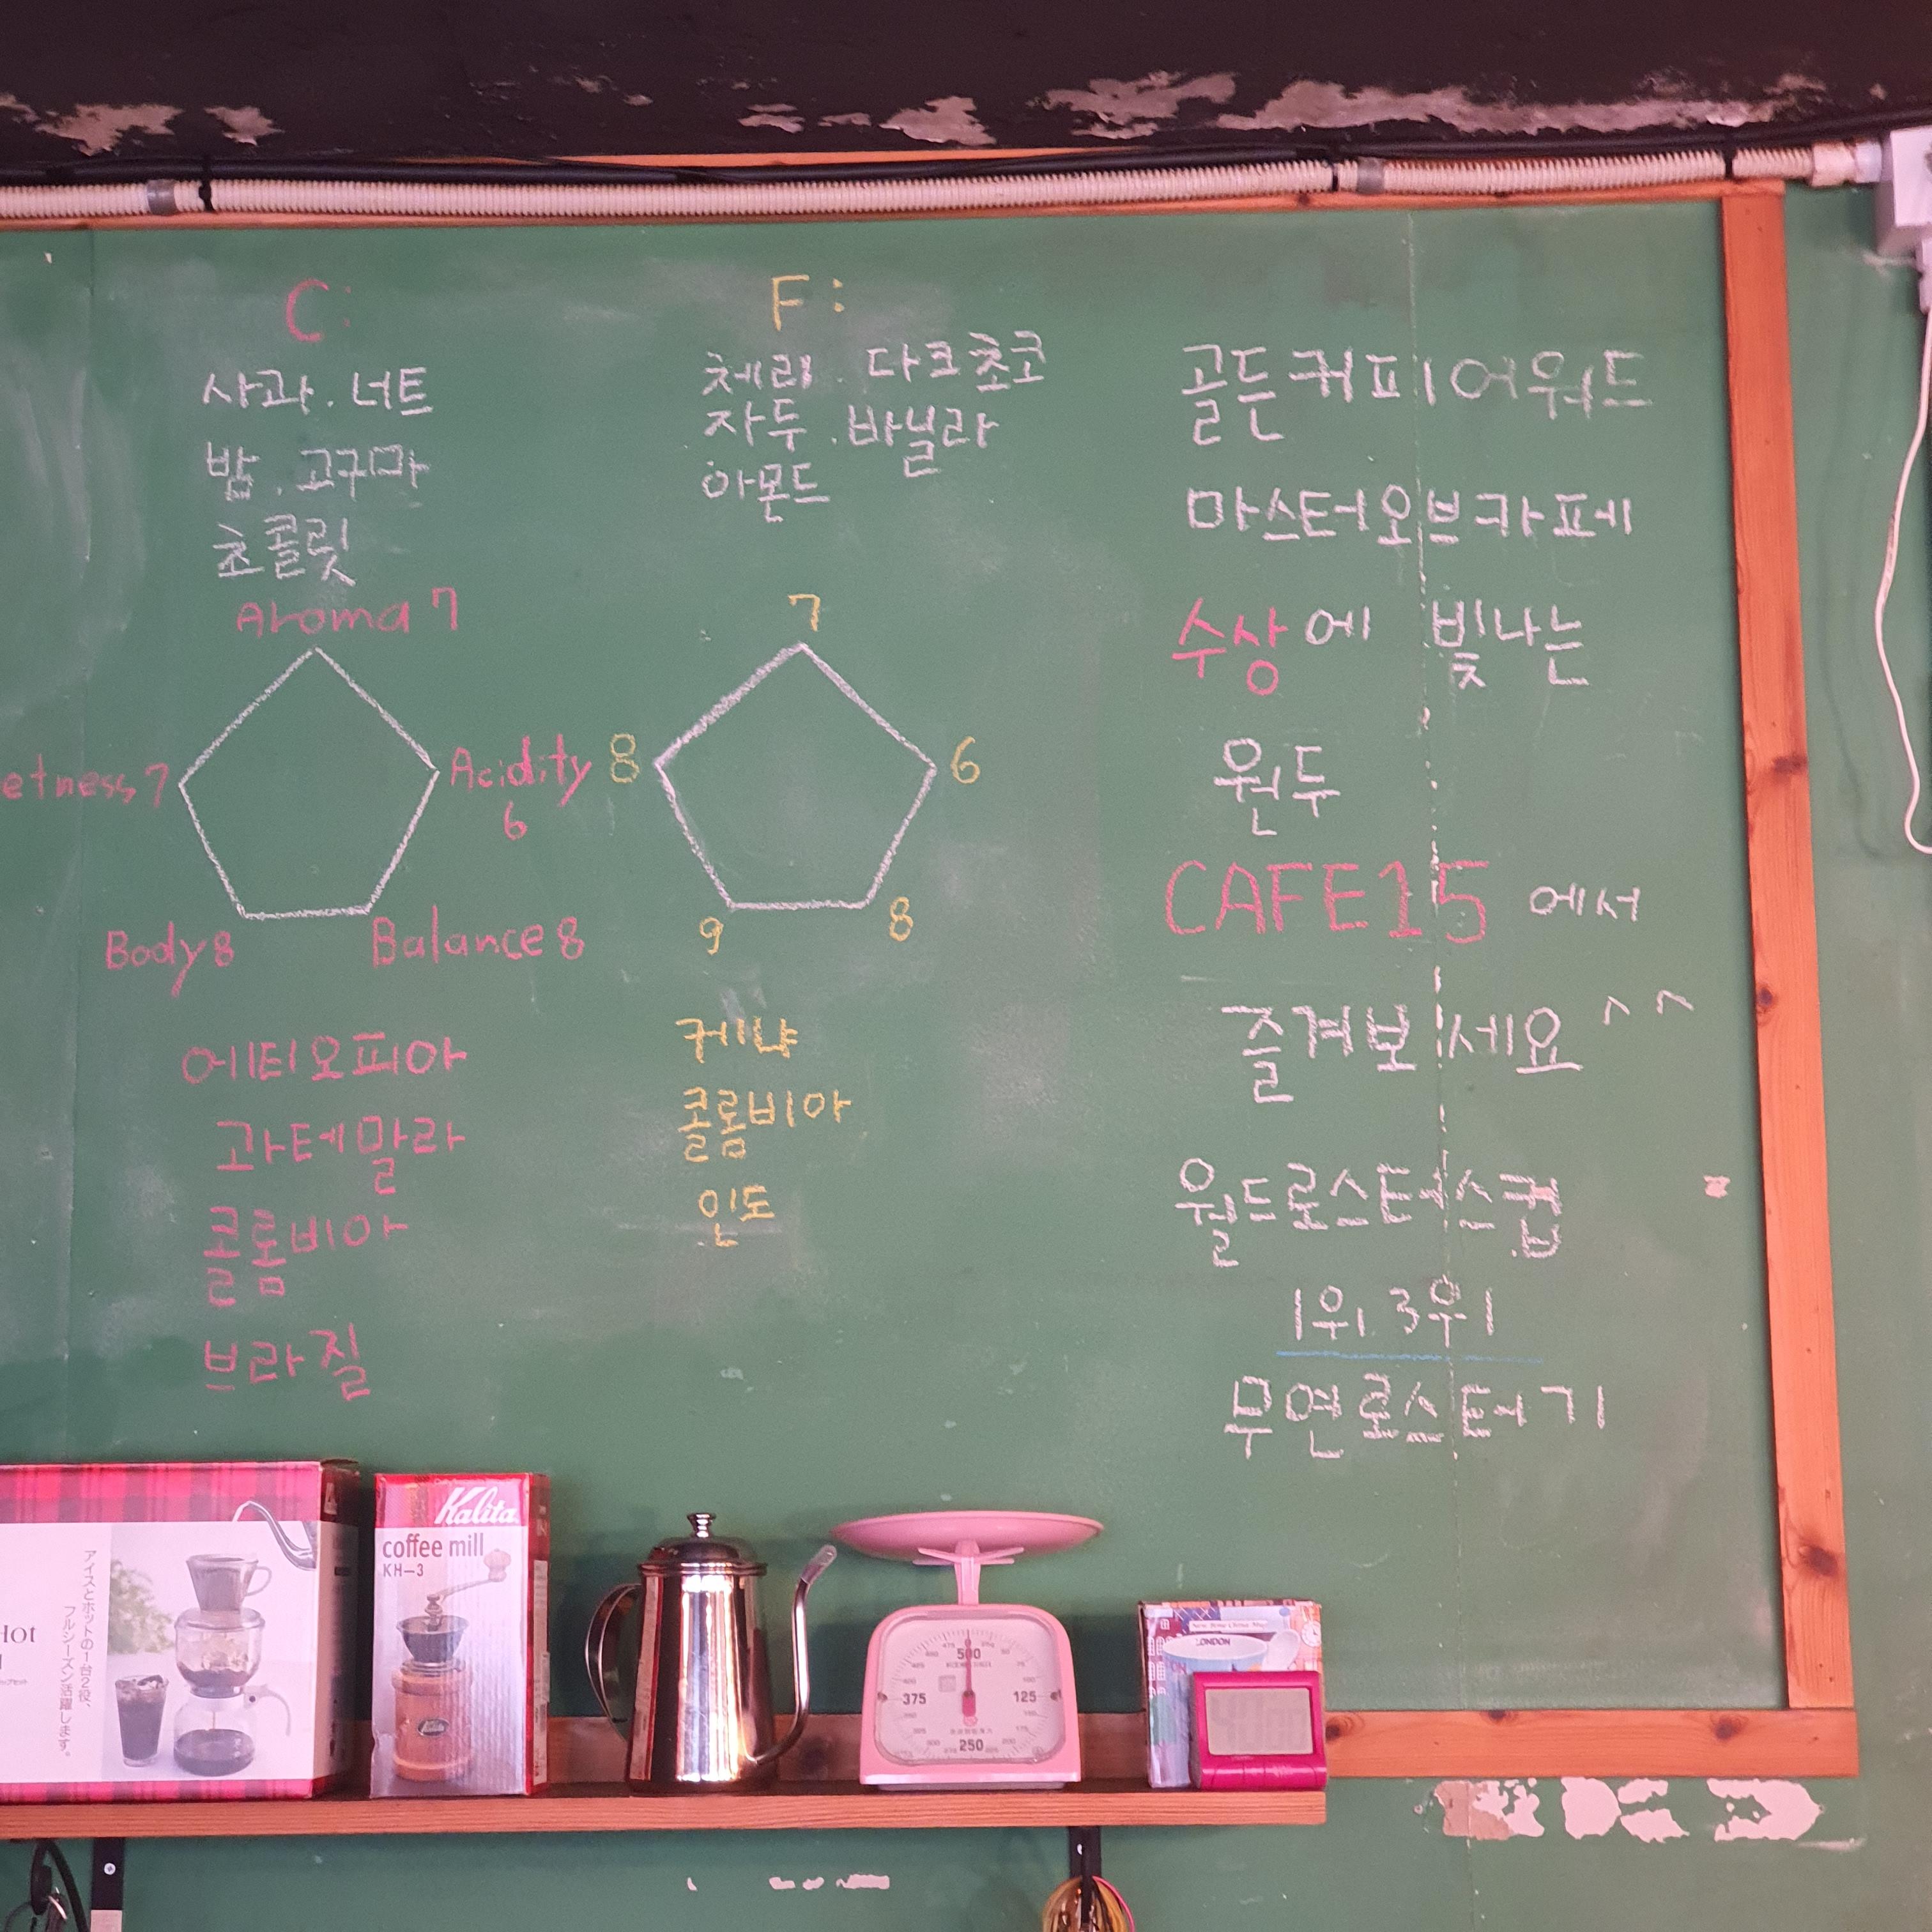 C:
사과. 너트
밤. 고구마
초콜릿
Aroma 7
etness 7
Acidity
6
Body 8
Balance 8
에티오피아
과테말라
콜롬비아
브라질
F:
체리. 다크초코
자두. 바닐라
아몬드
7
8
6
9
8
케냐
콜롬비아
인도
골든커피어워드
마스터오브카페
수상에 빛나는
원두
CAFE15 에서
즐겨보세요 ^^
월드로스터스컵
1위. 3위
무연로스터기
Hot
アイスとホットの1台2役、
フルシーズン活躍します。
Kalita
coffee mill
KH-3
500
375
125
250
LONDON